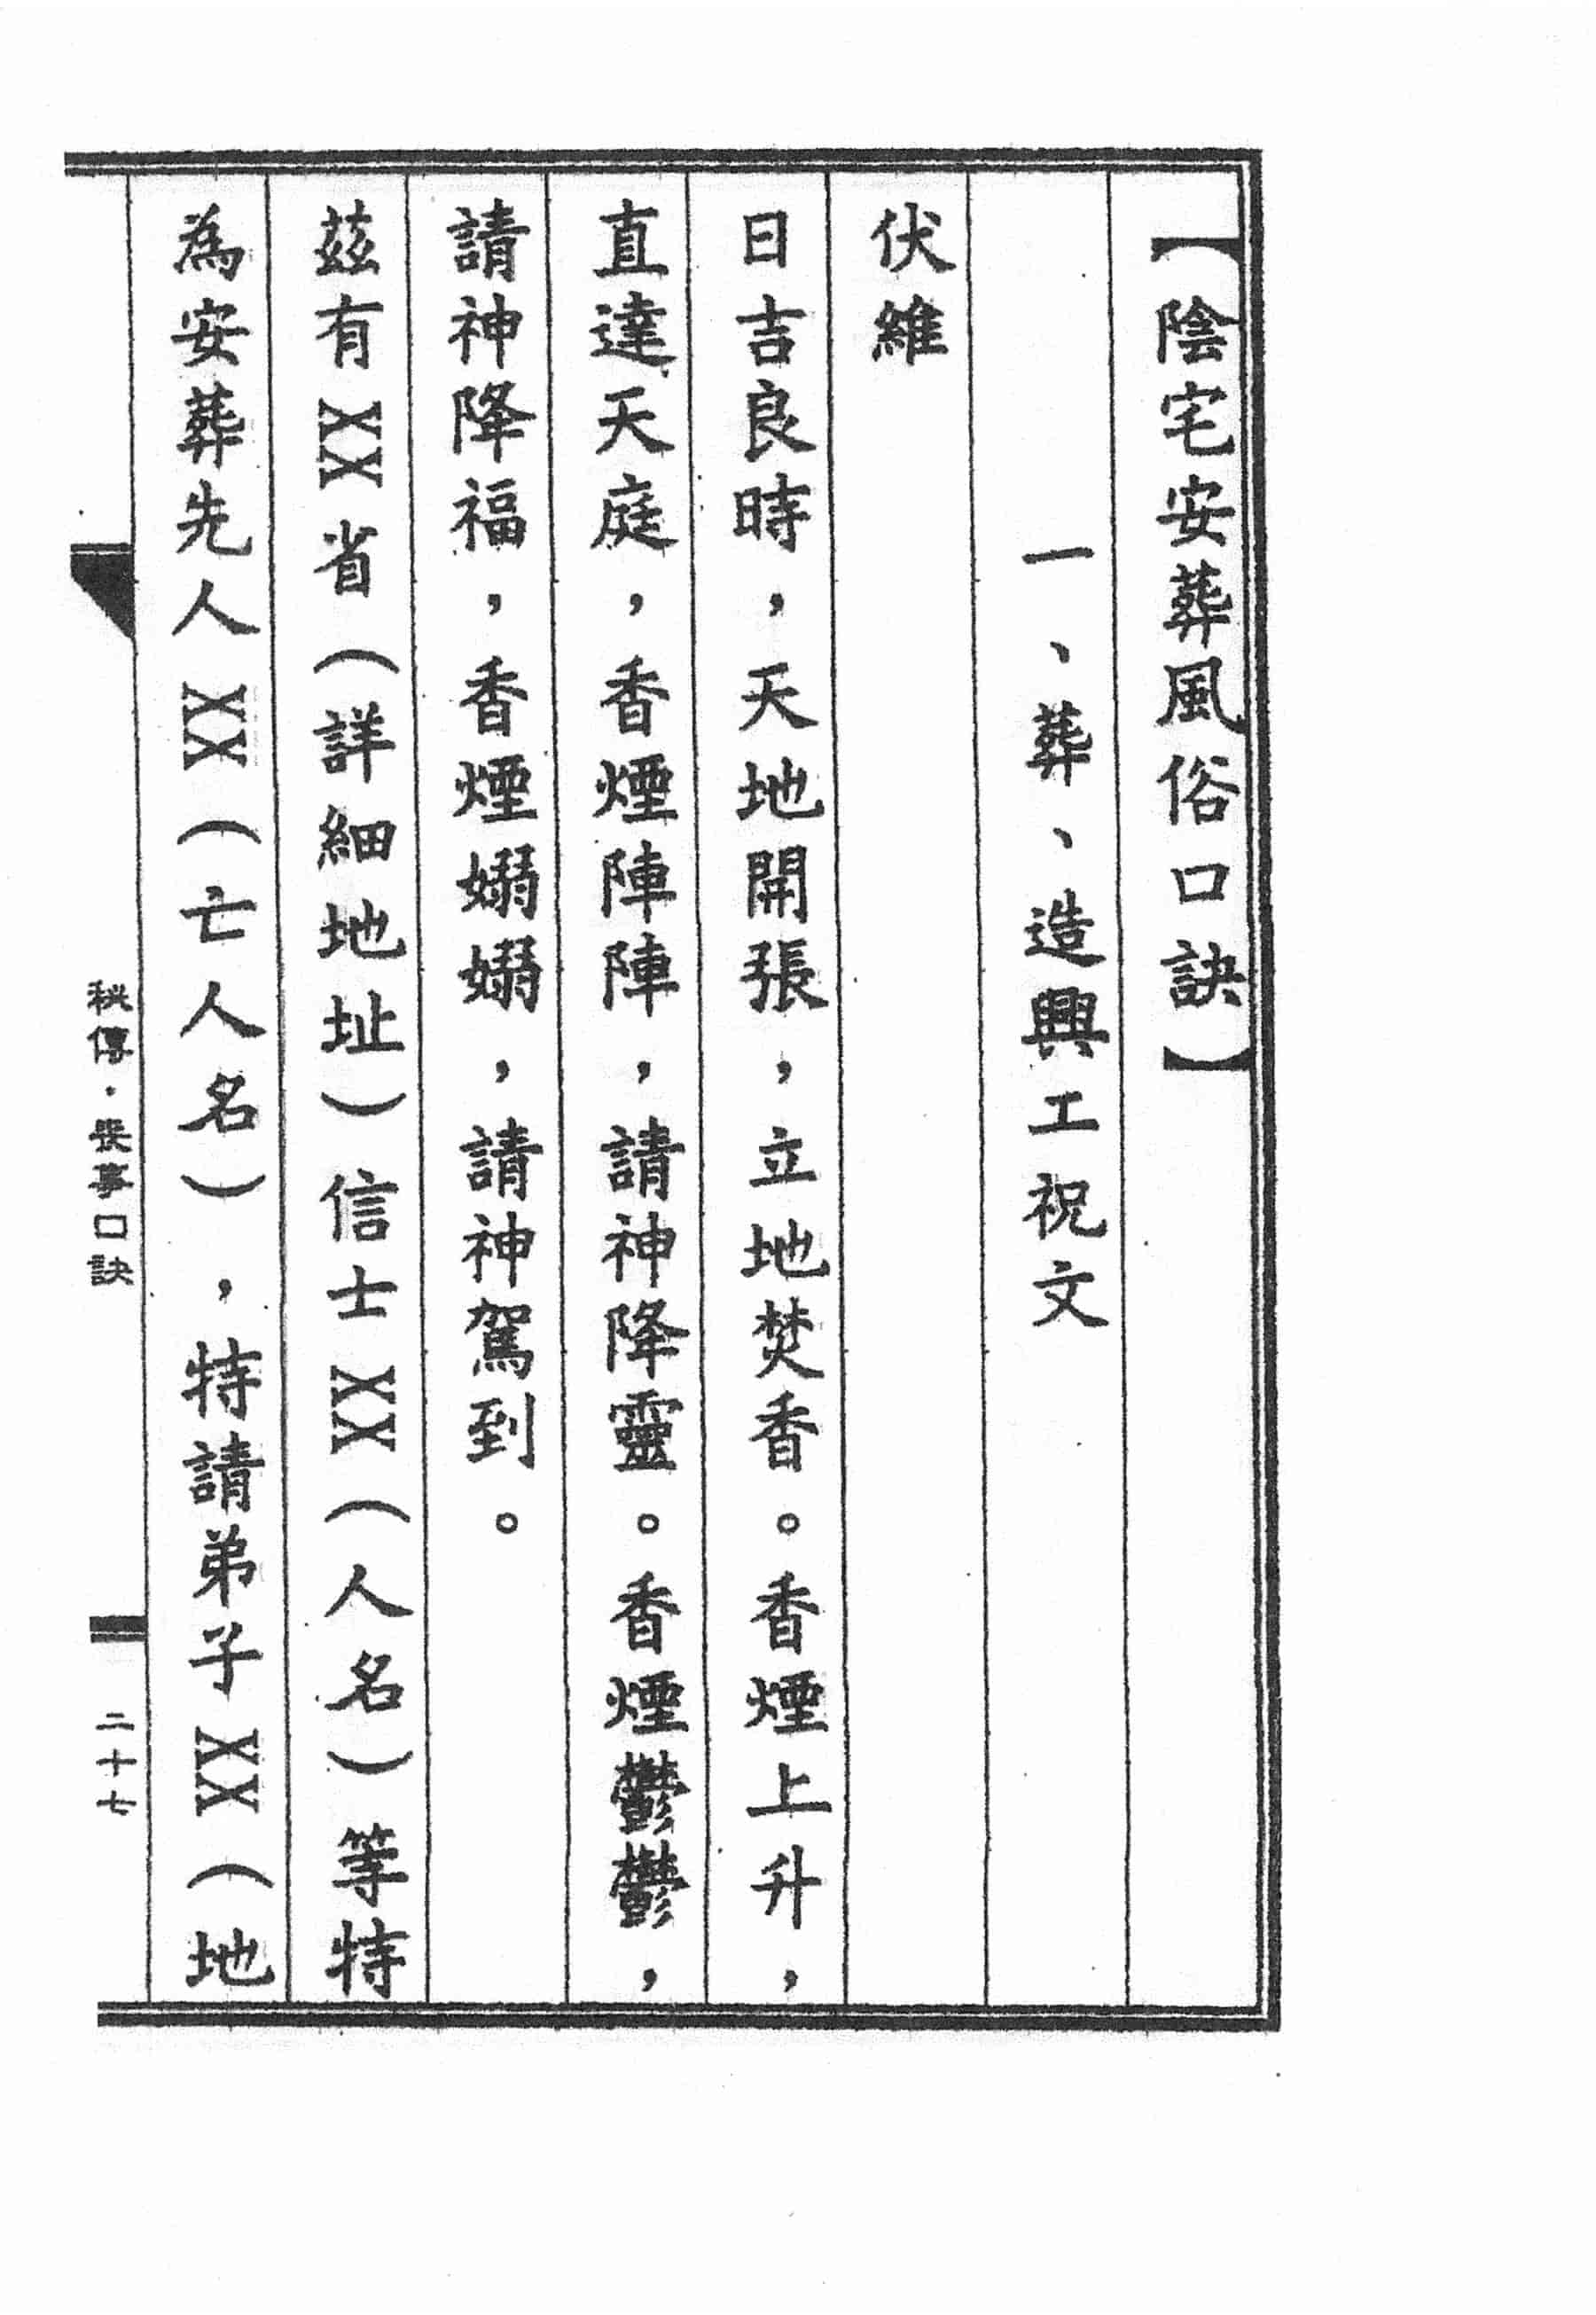 【陰宅安葬風俗口訣】
一、葬、造興工祝文
伏維
日吉良時，天地開張，立地焚香。香煙上升，
直達天庭，香煙陣陣，請神降靈。香煙鬱鬱，
請神降福，香煙嫋嫋，請神駕到。
茲有XX省（詳細地址）信士XX（人名）等特
為安葬先人XX（亡人名），特請弟子XX（地
秘傳·喪事口訣
二十七